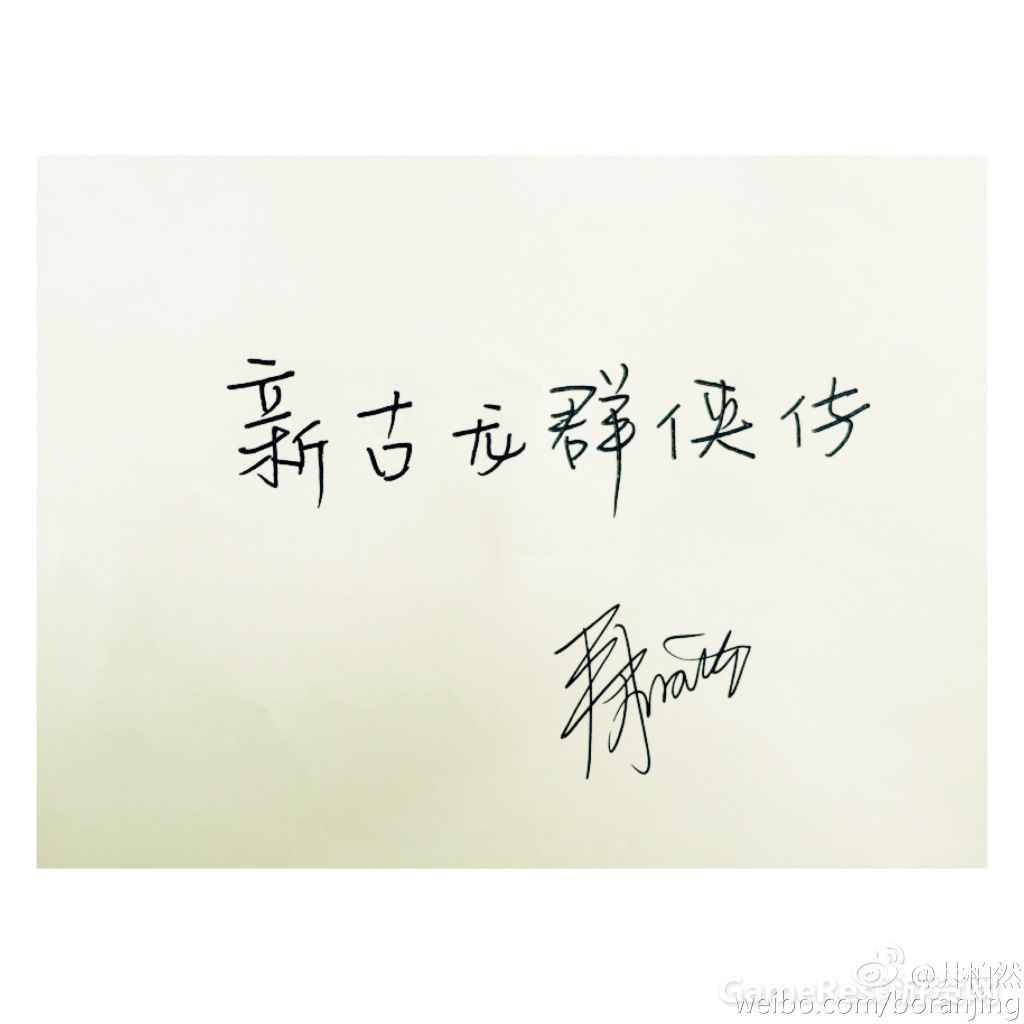 新古龙群侠传
@井柏然
GameRes游资网
weibo.com/boranjing